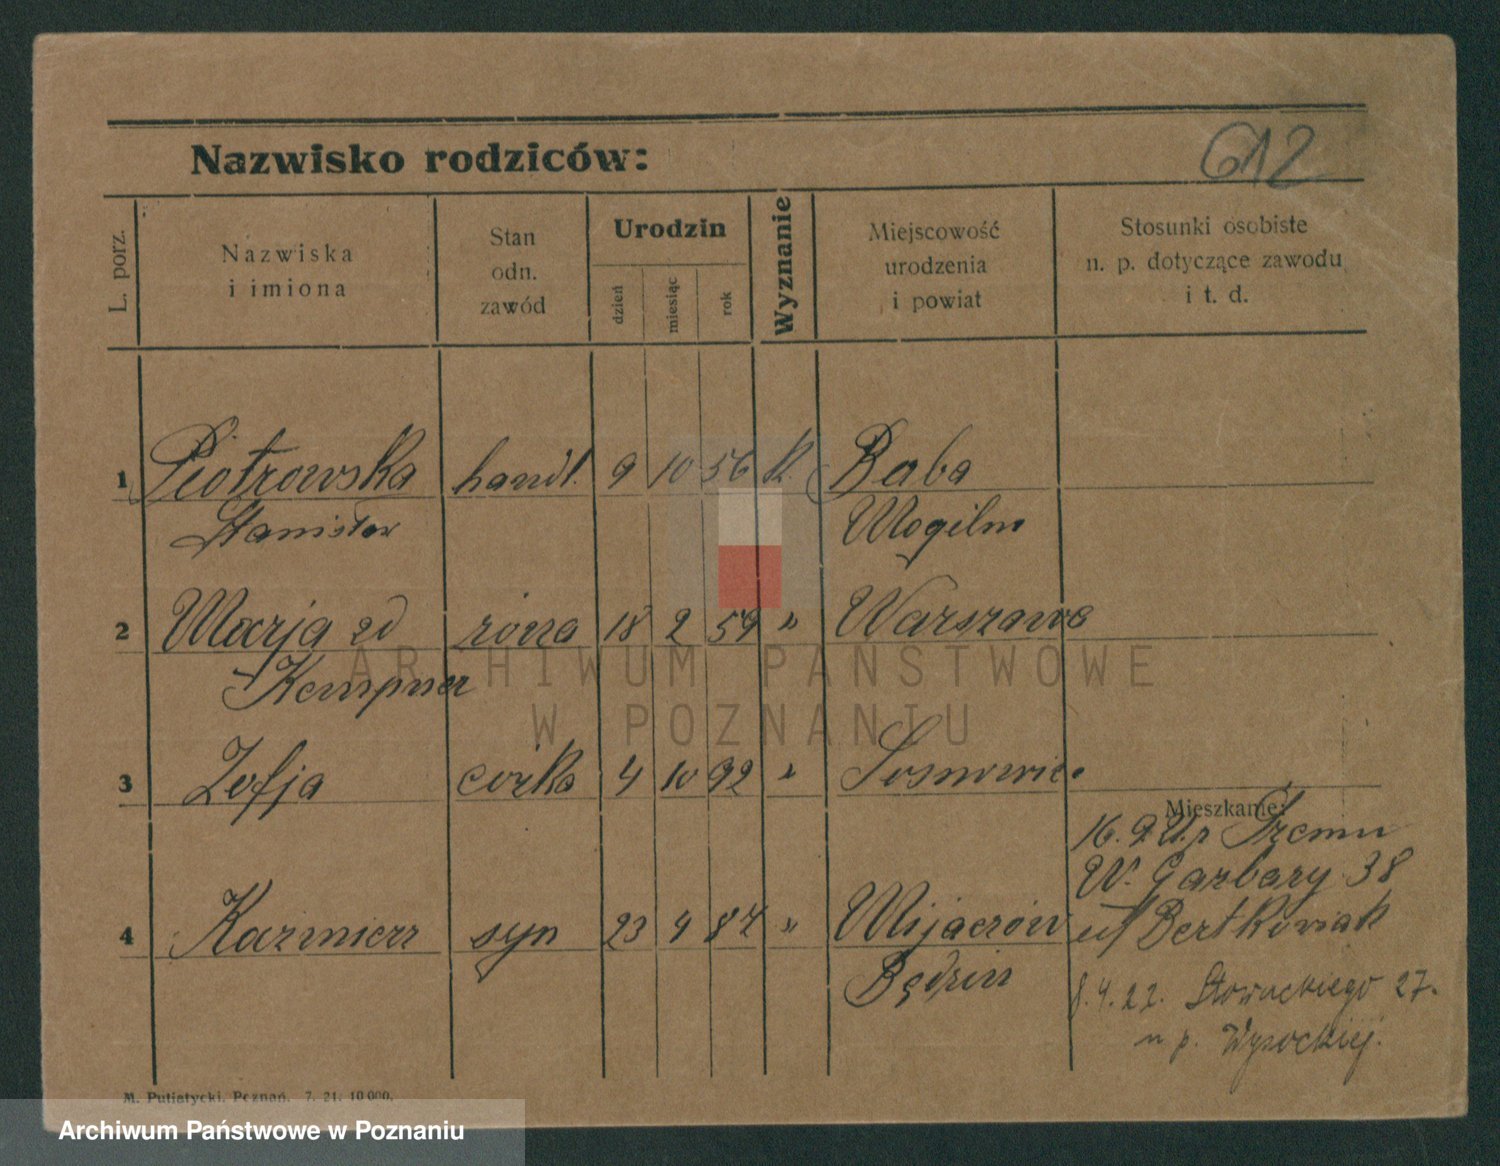 612
Nazwisko rodziców:
L. porz.
Nazwiska
i imiona
Stan
odn.
zawód
Urodzin
dzień
miesiąc
rok
Wyznanie
Miejscowość
urodzenia
i powiat
Stosunki osobiste
n. p. dotyczące zawodu
i t. d.
1 Piotrowska handl. 9 10 56 k. Baba
Stanisław Mogilno
2 Marja zd żona 18 2 59 " Warszawa
Kempner
ARCHIWUM PAŃSTWOWE
W POZNANIU
3 Zofja córka 4 10 92 " Sosnowice
Mieszkanie:
16. 9. 21. p
W. Garbary 38
4 Kazimierz syn 23 9 87 " Mijaczów
Bertkowiak
Będzin
8. 4. 22. Słowackiego 27.
n p. Wysockiej.
M. Putiatycki, Poznań. 7. 21. 10 000.
Archiwum Państwowe w Poznaniu